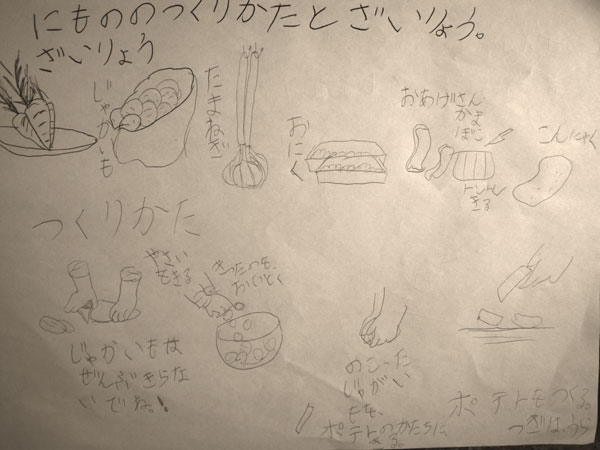 にもののつくりかたと ざいりょう。
ざいりょう
じゃがいも
たまねぎ
おにく
おあげさん
かま
ぼこ
トントン
きる
こんにゃく
つくりかた
やさい
もきる
きったのも、
おいとく
じゃがいもは
ぜんぶきらな
いでね。!
のこった
じゃがい
もを、
ポテトのかたちに
きる。
ポテトをつくる。
つぎは、うら